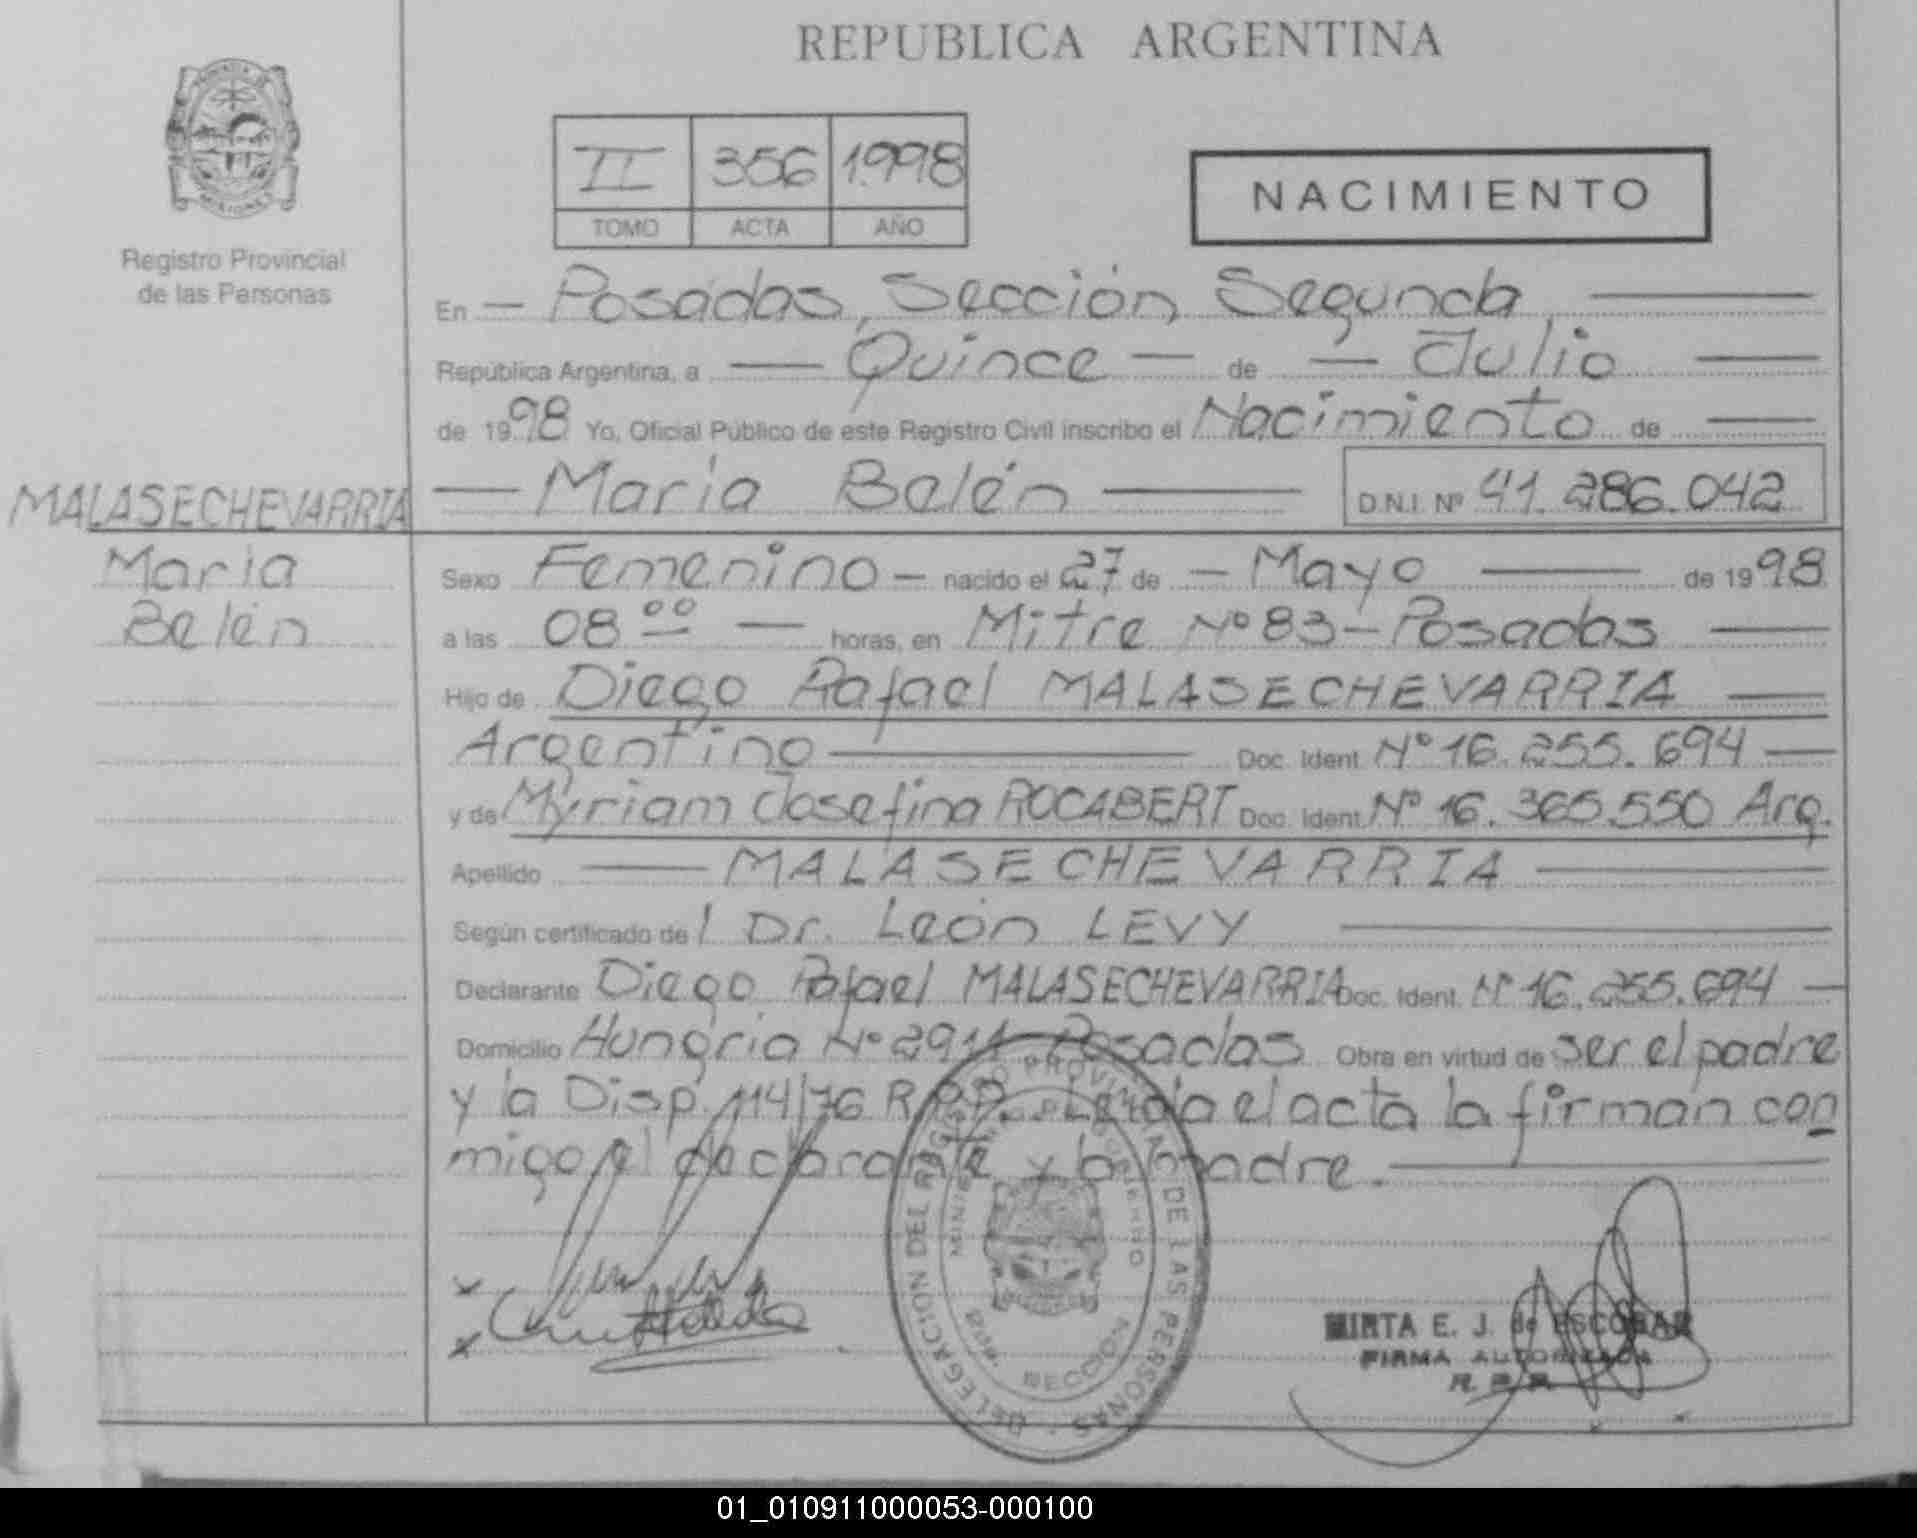 REPUBLICA ARGENTINA
II 356 1998
TOMO ACTA AÑO
NACIMIENTO
Registro Provincial
de las Personas
En — Posadas, Sección Segunda —
República Argentina, a — Quince — de — Julio —
de 1998 Yo, Oficial Público de este Registro Civil inscribo el Nacimiento de —
— María Belén — D.N.I. Nº 41.286.042
MALASECHEVARRIA
María
Belén
Sexo Femenino — nacido el 27 de — Mayo — de 1998
a las 08 00 — horas, en Mitre Nº 83 - Posadas —
Hijo de Diego Rafael MALASECHEVARRIA —
Argentino — Doc. Ident. Nº 16.255.694 —
y de Myriam Josefina ROCABERT Doc. Ident. Nº 16.365.550 Arg.
Apellido — MALASECHEVARRIA —
Según certificado de l Dr. León LEVY —
Declarante Diego Rafael MALASECHEVARRIA Doc. Ident. Nº 16.255.694 —
Domicilio Hungría Nº 2911 - Posadas Obra en virtud de ser el padre
y la Disp. 114/76 R.P.P. Leída el acta la firman con
migo el declarante y la madre. —
DELEGACION DEL REGISTRO PROVINCIAL DE LAS PERSONAS
MINISTERIO GOBIERNO
SECCION
MIRTA E. J. de ESCOBAR
FIRMA AUTORIZADA
R. P. P.
01_010911000053-000100